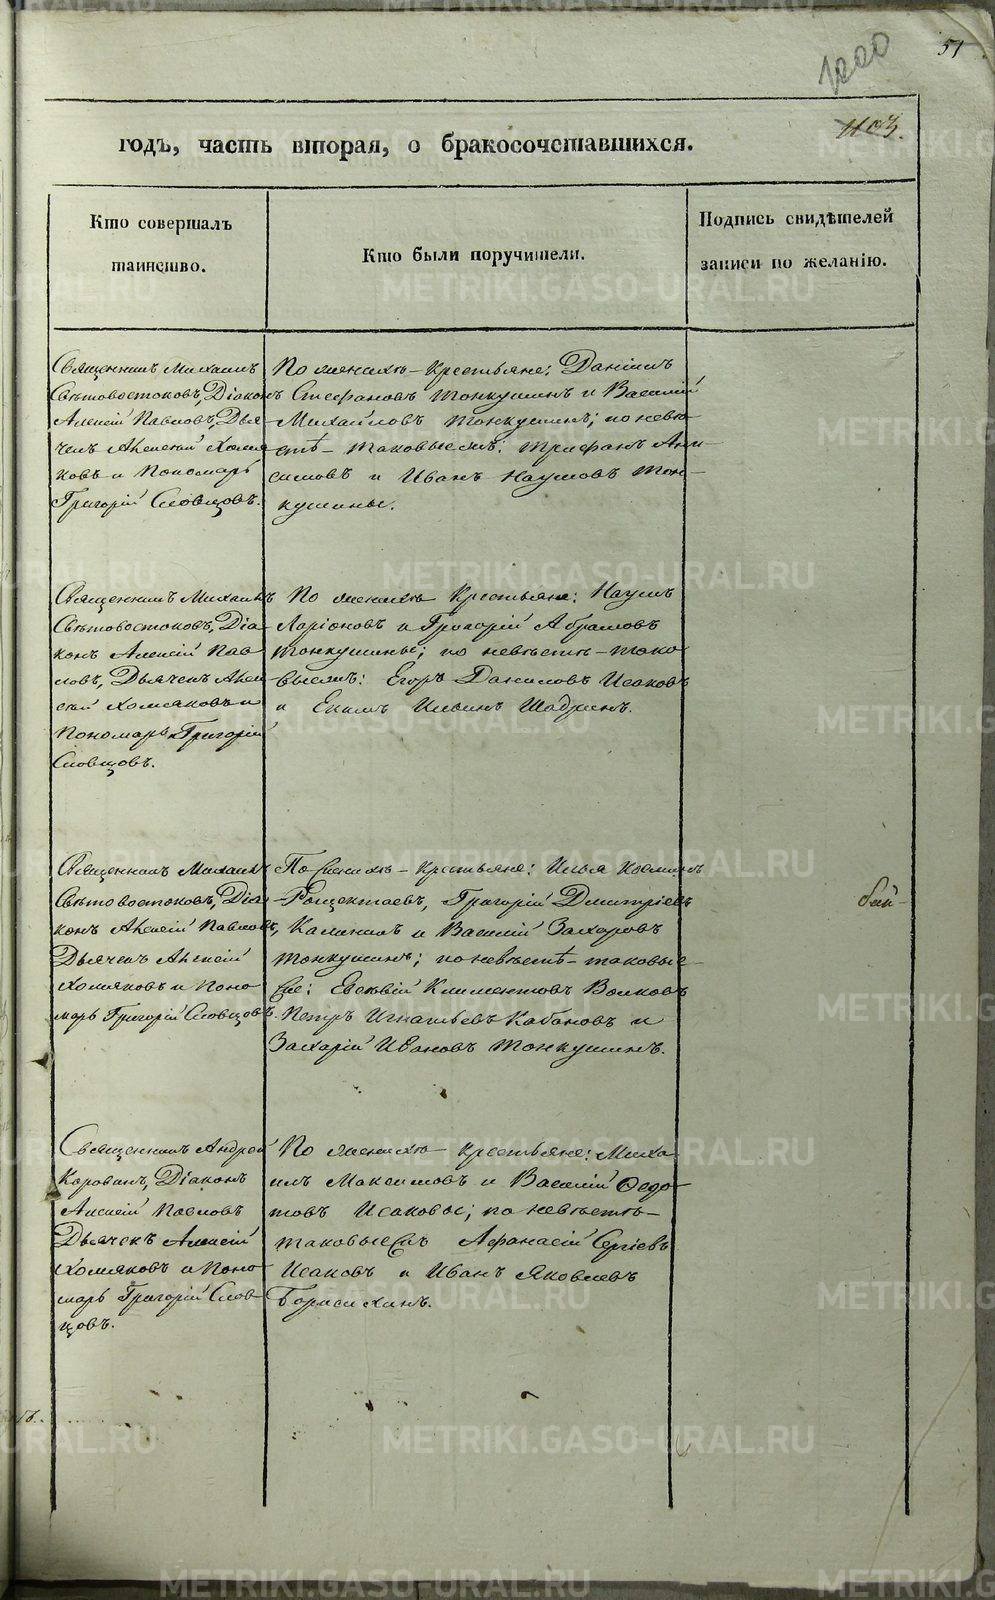 57
1200
1103.
годъ, часть вторая, о бракосочетавшихся.
Кто совершалъ
таинство.
Кто были поручители.
Подпись свидѣтелей
записи по желанію.
Священникъ Михаилъ
Свѣтовостоковъ, Діаконъ
Алексій Павловъ, Дья
чекъ Алексій Холмя
ковъ и Пономарь
Григорій Словцовъ.
По женихѣ - Крестьяне: Даніилъ
Стефановъ Тонкушинъ и Василій
Михайловъ Тонкушинъ; по невѣ
стѣ - таковыежъ: Трифанъ Ани
симовъ и Иванъ Наумовъ Тон-
кушины.
Священникъ Михаилъ
Свѣтовостоковъ, Діа-
конъ Алексій Пав
ловъ, Дьячекъ Алек
сій Холмяковъ и
Пономарь Григорій
Словцовъ.
По женихѣ Крестьяне: Наумъ
Ларіоновъ и Григорій Абрамовъ
Тонкушины; по невѣстѣ - тако
выежъ: Егоръ Даниловъ Исаковъ
и Екимъ Ильинъ Шадринъ.
Священникъ Михаилъ
Свѣтовостоковъ, Діа
конъ Алексій Павловъ,
Дьячекъ Алексій
Холмяковъ и Поно
марь Григорій Словцовъ.
По женихѣ - Крестьяне: Илья
Григорій Дмитріевъ
Калининъ и Василій Захаровъ
Тонкушинъ; по невѣстѣ - таковые
же: Евсевій Климентовъ Волковъ
Петръ Игнатьевъ Кабановъ и
Захарій Ивановъ Тонкушинъ.
Священникъ Андрей
Коровинъ, Діаконъ
Алексій Павловъ
Дьячекъ Алексій
Холмяковъ и Поно
марь Григорій Слов
цовъ.
По женихѣ Крестьяне: Миха
илъ Максимовъ и Василій Ѳедо-
товъ Исаковы; по невѣстѣ -
таковыежъ Афанасій Сергіевъ
Исаковъ и Иванъ Яковлевъ
Борисихинъ.
METRIKI.GASO-URAL.RU